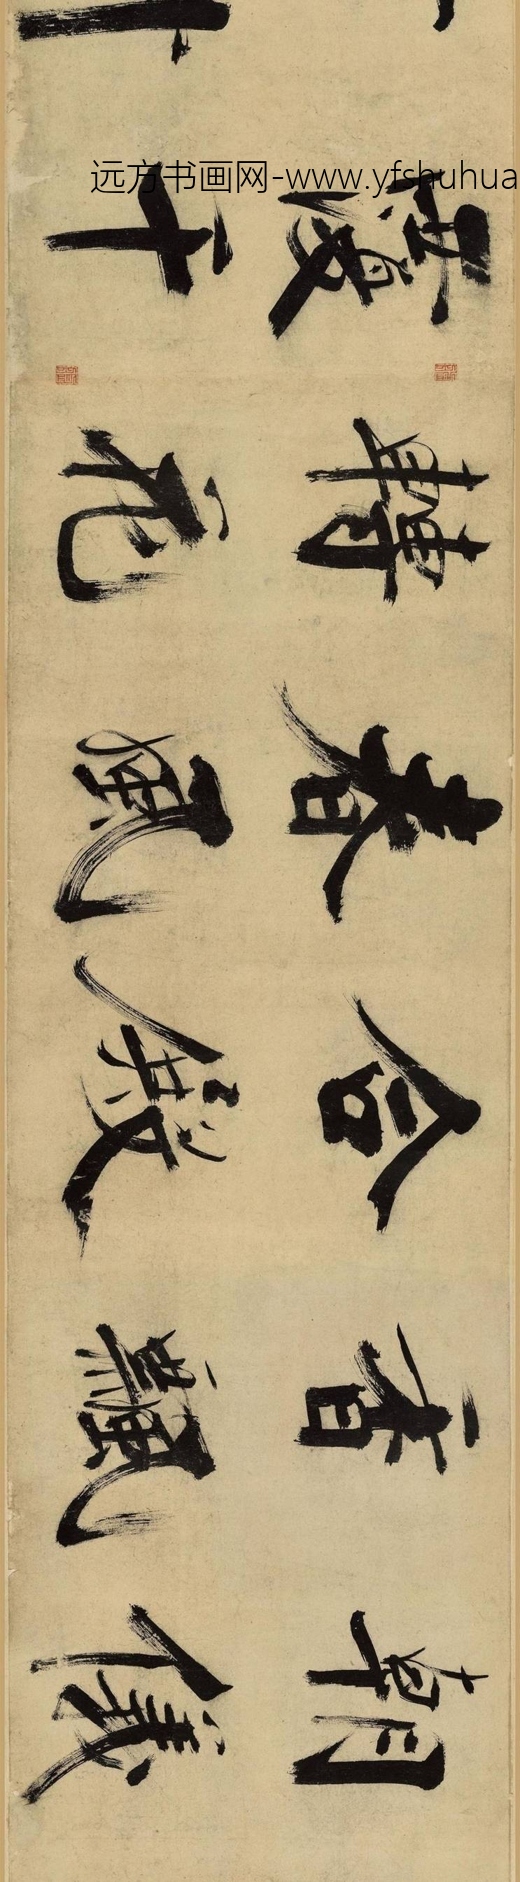 朝儀
香飄
合殿
春風
轉花
覆千
远方书画网-www.yfshuhua